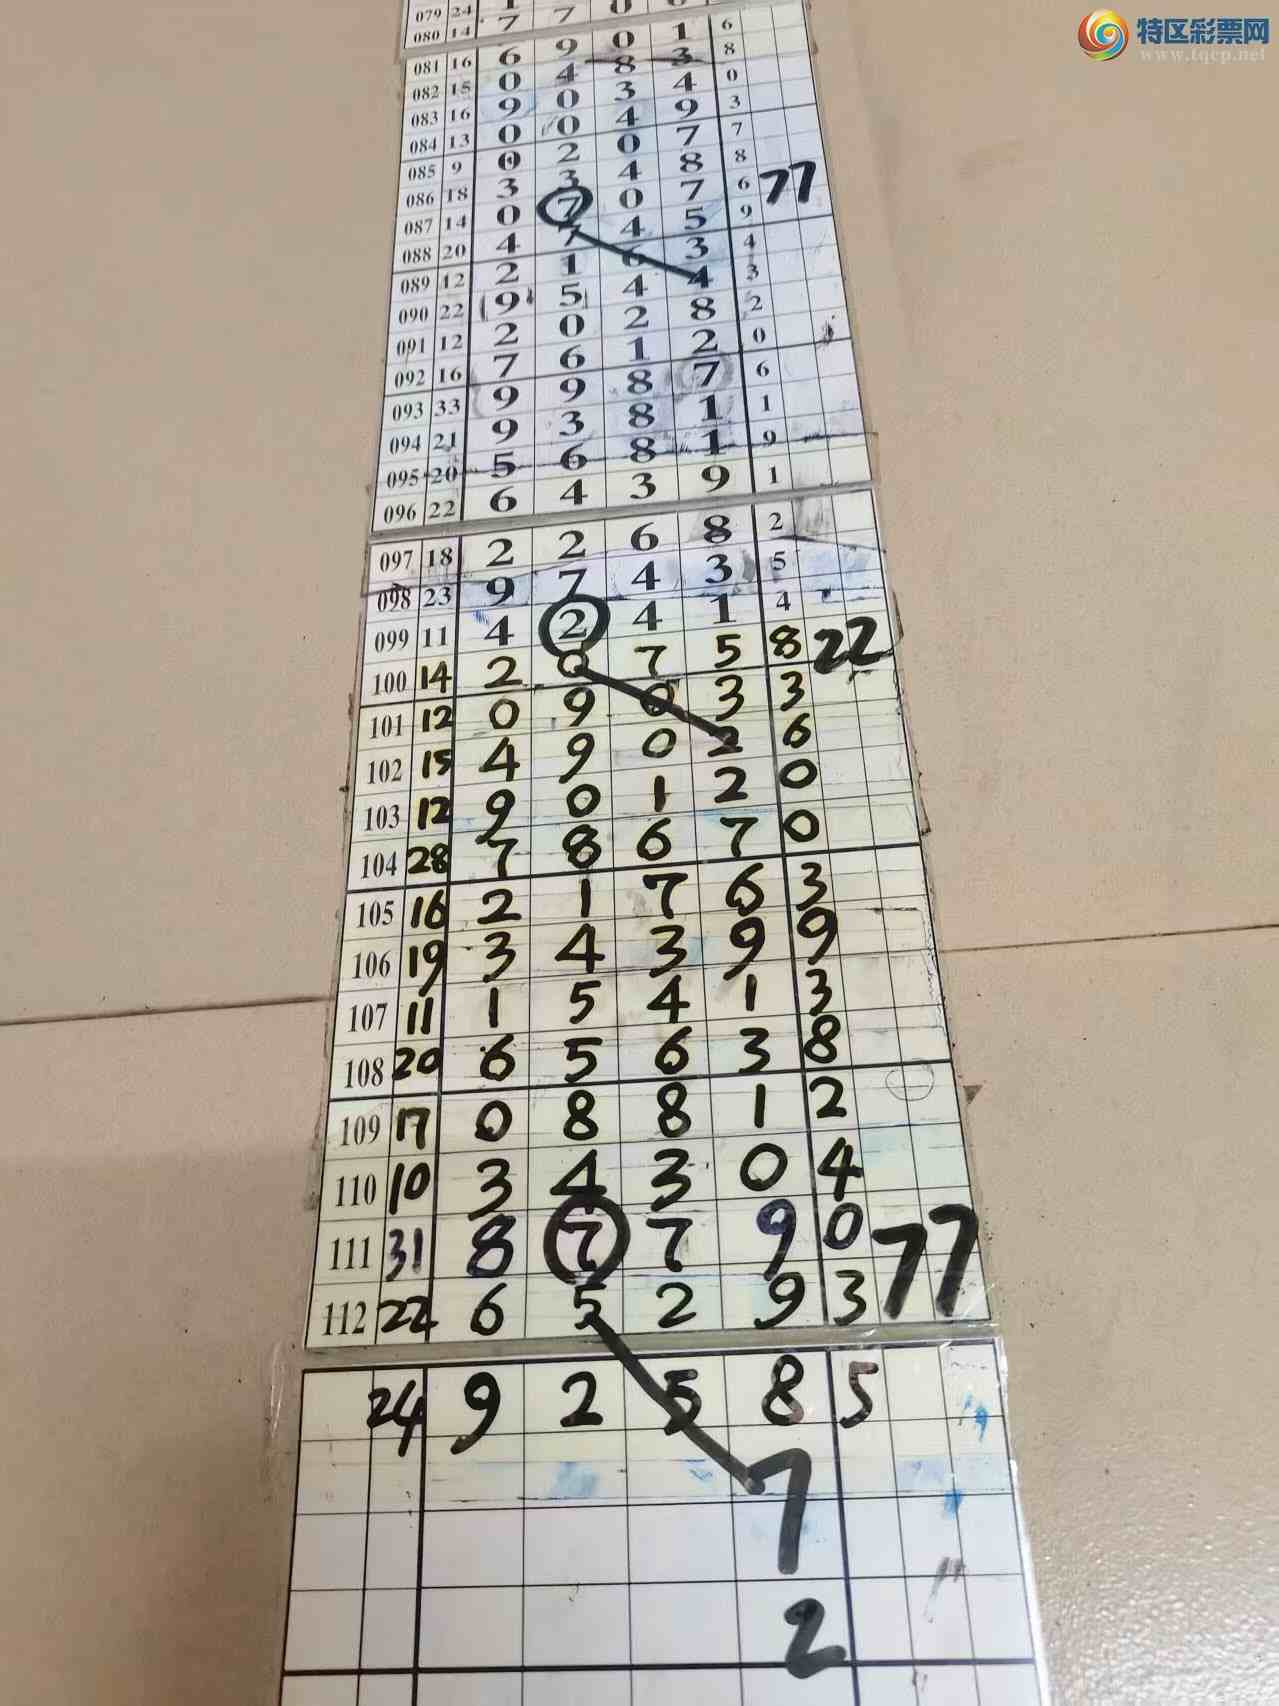 特区彩票网
www.tqcp.net
079 24
080 14 7 7 0 0
081 16 6 9 0 1 6
082 15 0 4 8 3 8
083 16 9 0 3 4 0
084 13 0 0 4 9 3
085 9 0 2 0 7 7
086 18 3 3 4 8 8
087 14 0 7 0 7 6 77
088 20 4 7 4 5 9
089 12 2 1 6 3 4
090 22 9 5 4 4 3
091 12 2 0 2 8 2
092 16 7 6 1 2 0
093 33 9 9 8 7 6
094 21 9 3 8 1 1
095 20 5 6 8 1 9
096 22 6 4 3 9 1
097 18 2 2 6 8 2
098 23 9 7 4 3 5
099 11 4 2 4 1 4 22
100 14 2 0 7 5 8
101 12 0 9 0 3 3
102 15 4 9 0 2 6
103 12 9 0 1 2 0
104 28 7 8 6 7 0
105 16 2 1 7 6 3
106 19 3 4 3 9 9
107 11 1 5 4 1 3
108 20 6 5 6 3 8
109 17 0 8 8 1 2
110 10 3 4 3 0 4
111 31 8 7 7 9 0 77
112 22 6 5 2 9 3
24 9 2 5 8 5
7
2